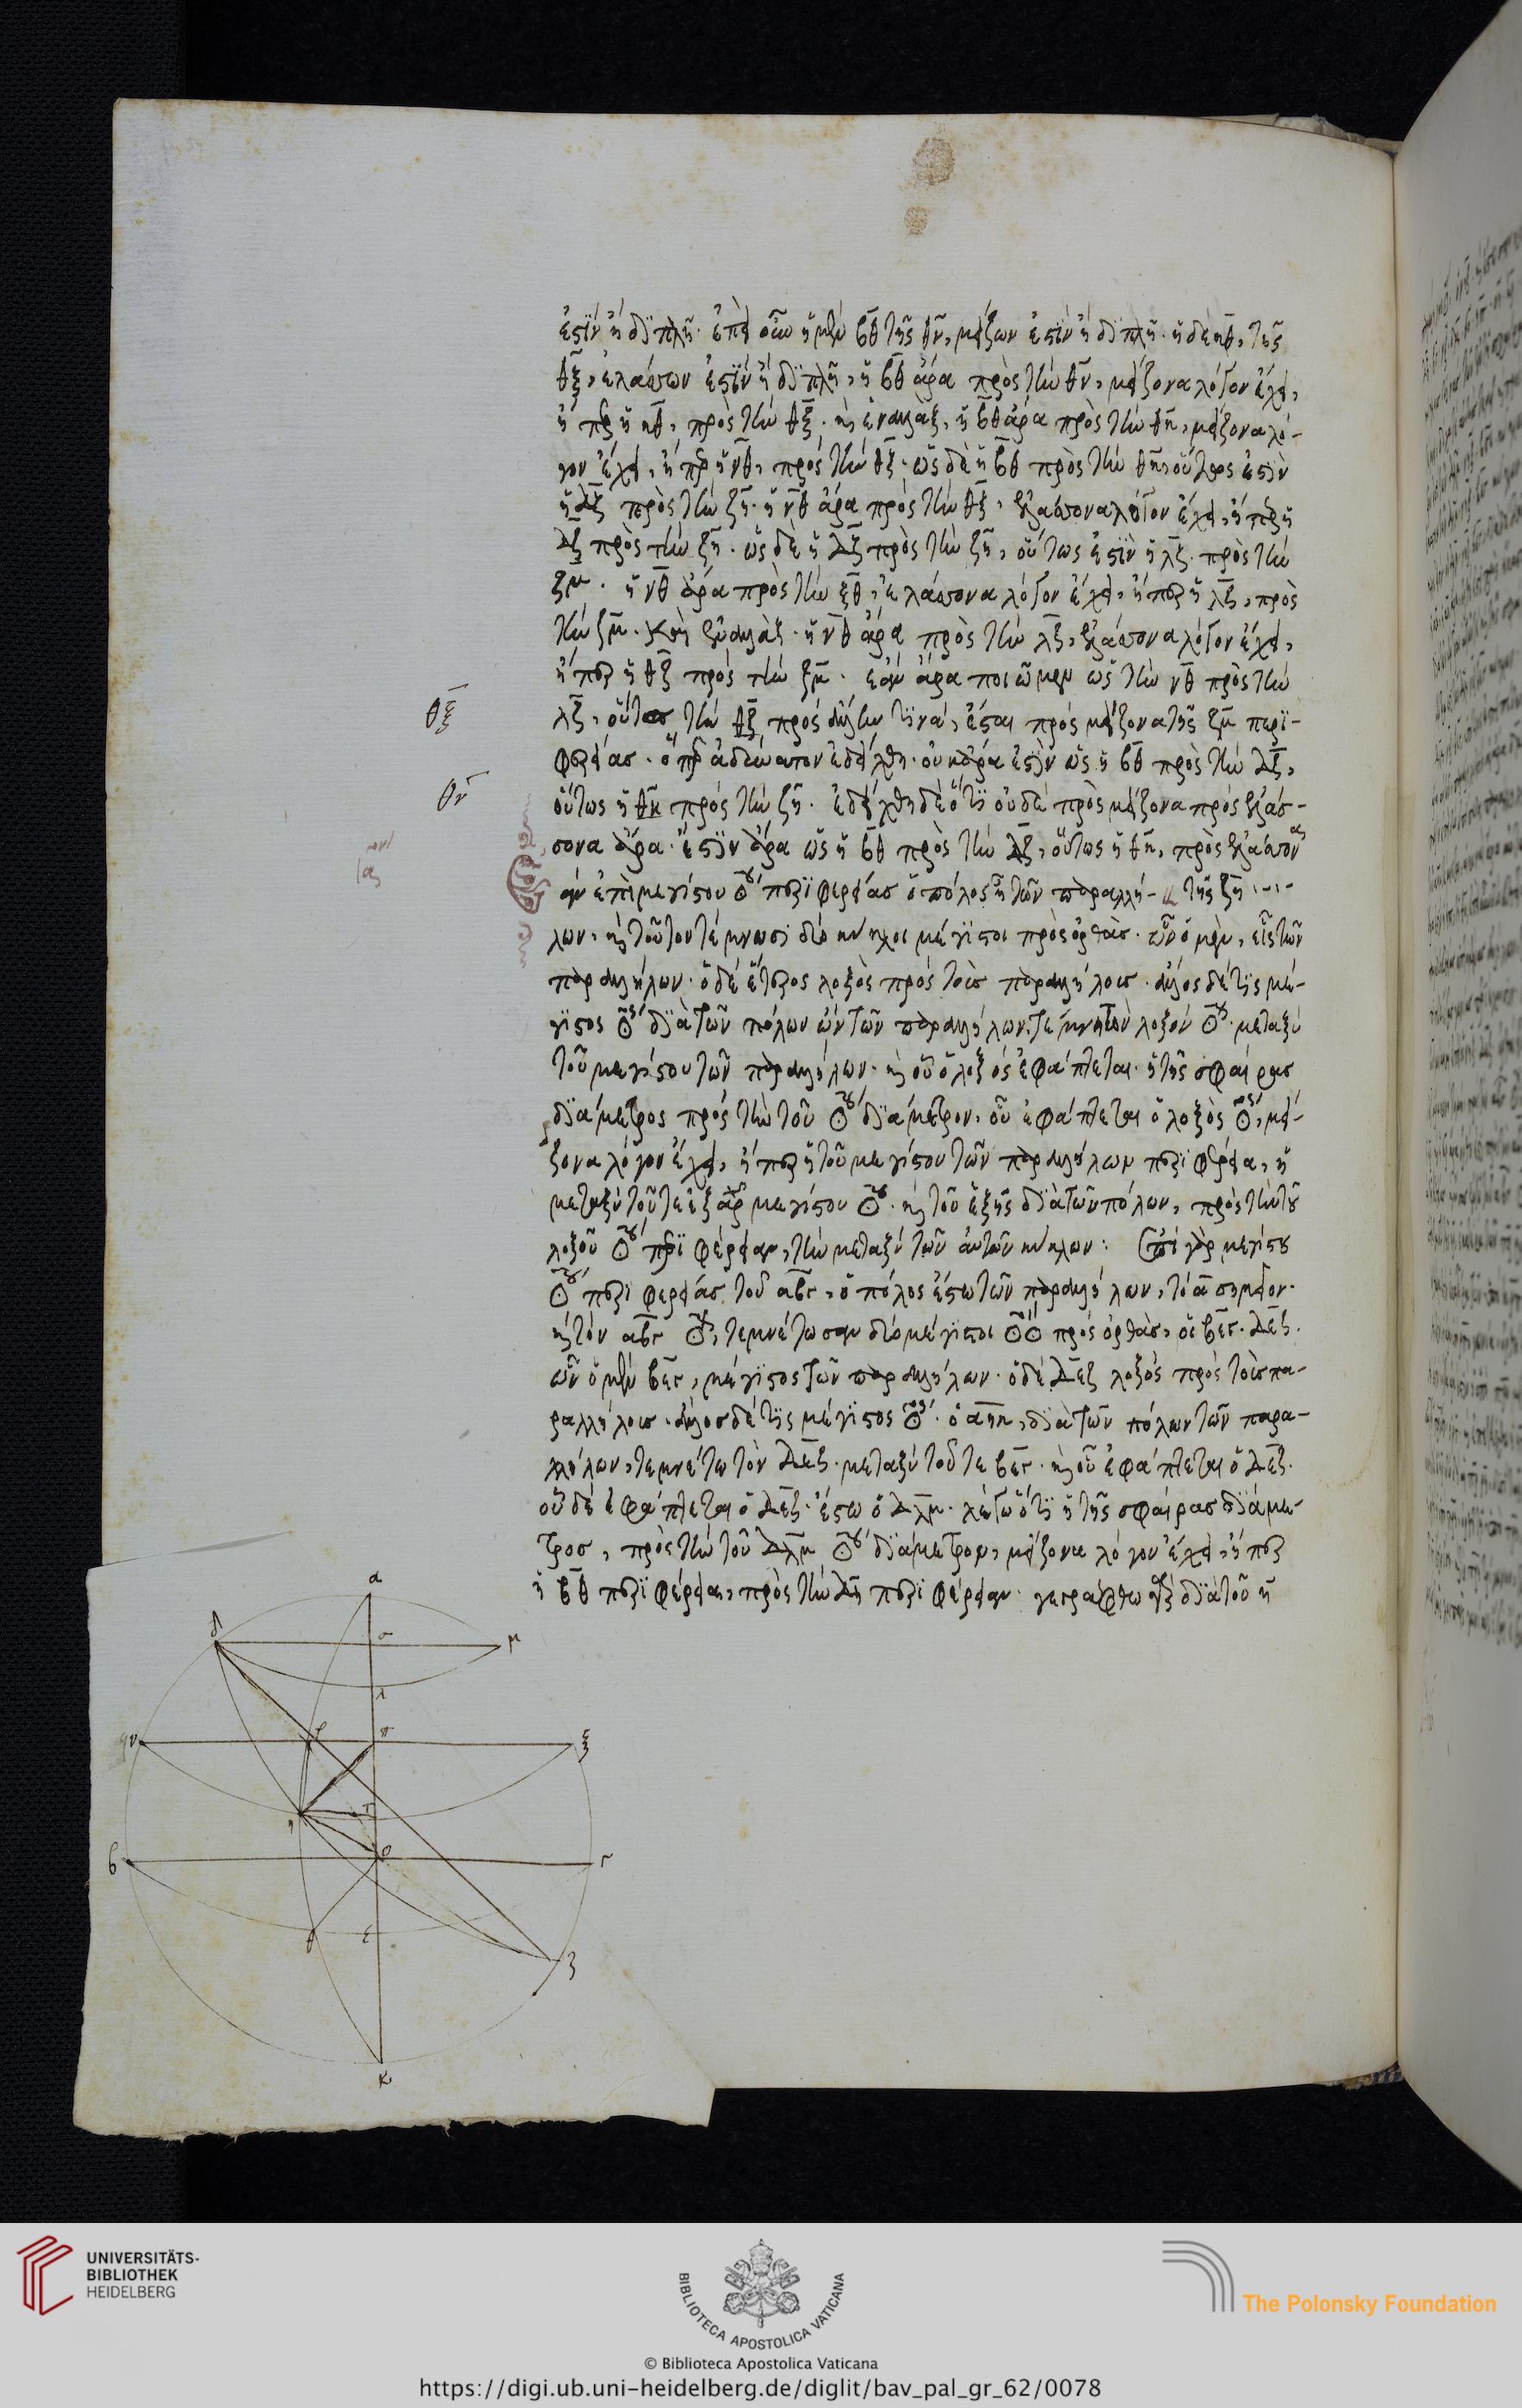 ἐστὶν ἢ διπλῆ· ἐπεὶ οὖν ἡ μὲν βθ τῆς θν, μείζων ἐστὶν ἢ διπλῆ· ἡ δὲ ηθ, τῆς
θξ, ἐλάσσων ἐστὶν ἢ διπλῆ, ἡ βθ ἄρα πρὸς τὴν θν, μείζονα λόγον ἔχει,
ἤπερ ἡ ηθ, πρὸς τὴν θξ· καὶ ἐναλλὰξ, ἡ βθ ἄρα πρὸς τὴν θη, μείζονα λό-
γον ἔχει, ἤπερ ἡ νθ, πρὸς τὴν θξ· ὡς δὲ ἡ βθ πρὸς τὴν θη, οὕτως ἐστὶν
ἡ δζ πρὸς τὴν ζη· ἡ νθ ἄρα πρὸς τὴν θξ, ἐλάσσονα λόγον ἔχει, ἤπερ ἡ
δζ πρὸς τὴν ζη· ὡς δὲ ἡ δζ πρὸς τὴν ζη, οὕτως ἐστὶν ἡ λζ πρὸς τὴν
ζμ· ἡ νθ ἄρα πρὸς τὴν ξθ, ἐλάσσονα λόγον ἔχει, ἤπερ ἡ λζ, πρὸς
τὴν ζμ· καὶ ἐναλλὰξ· ἡ νθ ἄρα πρὸς τὴν λζ, ἐλάσσονα λόγον ἔχει,
ἤπερ ἡ θξ πρὸς τὴν ζμ· ἐὰν ἄρα ποιῶμεν ὡς τὴν νθ πρὸς τὴν
θξ
λζ, οὕτως τὴν θξ πρὸς ἄλλην τινά, ἔσται πρὸς μείζονα τῆς ζμ περι-
φερείας· ὅπερ ἀδύνατον ἐδείχθη· οὐκ ἄρα ἐστὶν ὡς ἡ βθ πρὸς τὴν δζ,
θν
οὕτως ἡ θη πρὸς τὴν ζη· ἐδείχθη δὲ ὅτι οὐδὲ πρὸς μείζονα πρὸς ἐλάσ-
σονα ἄρα· ἔστιν ἄρα ὡς ἡ βθ πρὸς τὴν δζ, οὕτως ἡ θη, πρὸς ἐλάσσονα
ἐὰν ἐπὶ μεγίστου περιφερείας ὁ πόλος ᾖ τῶν παραλλή- τῆς ζη
λων, καὶ τοῦτον τέμνωσι δύο κύκλοι μέγιστοι πρὸς ὀρθὰς· ὧν ὁ μὲν, εἷς τῶν
παραλλήλων· ὁ δὲ ἕτερος λοξὸς πρὸς τοῖς παραλλήλοις· ἄλλος δέ τις μέ-
γιστος διὰ τῶν πόλων ὢν τῶν παραλλήλων, τέμνῃ τὸν λοξὸν· μεταξὺ
τοῦ μεγίστου τῶν παραλλήλων· καὶ οὗ ὁ λοξὸς ἐφάπτεται· ἡ τῆς σφαίρας
διάμετρος πρὸς τὴν τοῦ διάμετρον, οὗ ἐφάπτεται ὁ λοξὸς, μεί-
ζονα λόγον ἔχει, ἤπερ ἡ τοῦ μεγίστου τῶν παραλλήλων περιφέρεια, ἡ
μεταξὺ τοῦ τε ἐξ ἀρχῆς μεγίστου· καὶ τοῦ ἑξῆς διὰ τῶν πόλων, πρὸς τὴν τοῦ
λοξοῦ περιφέρειαν, τὴν μεταξὺ τῶν αὐτῶν κύκλων: Ἐπὶ γὰρ μεγίστου
περιφερείας τοῦ αβγ, ὁ πόλος ἔστω τῶν παραλλήλων, τὸ α σημεῖον·
καὶ τὸν αβγ, τεμνέτωσαν δύο μέγιστοι πρὸς ὀρθὰς, οἱ βεγ· δεζ·
ὧν ὁ μὲν βεγ, μέγιστος τῶν παραλλήλων· ὁ δὲ δεζ λοξὸς πρὸς τοῖς πα-
ραλλήλοις· ἄλλος δέ τις μέγιστος· ὁ αηκ, διὰ τῶν πόλων τῶν παρα-
λλήλων, τεμνέτω τὸν δεζ· μεταξὺ τοῦ τε βεγ· καὶ οὗ ἐφάπτεται ὁ δεζ·
οὗ δὲ ἐφάπτεται ὁ δεζ· ἔστω ὁ δλμ· λέγω ὅτι ἡ τῆς σφαίρας διάμε-
τρος, πρὸς τὴν τοῦ δλμ διάμετρον, μείζονα λόγον ἔχει, ἤπερ
ἡ βθ περιφέρεια, πρὸς τὴν δη περιφέρειαν· γεγράφθω γὰρ διὰ τοῦ η
α
δ σ μ
λ
ν ρ π ξ
η τ
β ο γ
θ ε
ζ
κ
UNIVERSITÄTS-
BIBLIOTHEK
HEIDELBERG
BIBLIOTECA APOSTOLICA VATICANA
The Polonsky Foundation
© Biblioteca Apostolica Vaticana
https://digi.ub.uni-heidelberg.de/diglit/bav_pal_gr_62/0078